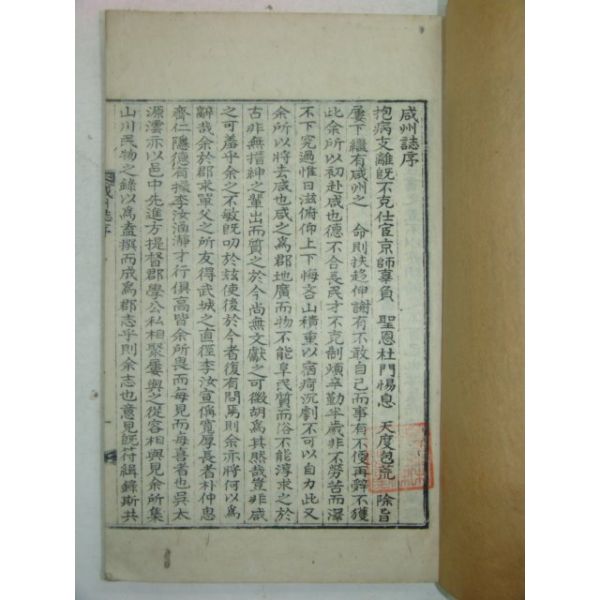 咸州誌序
抱病支離旣不克仕宦京師辜負　聖恩杜門惕息　天度苞荒　除旨
屢下繼有咸州之　命則扶移伸謝有不敢自己而事有不便再辭不獲
此余所以初赴咸也德不合長民才不克制煩辛勤半歲非不勞苦而澤
不下究過惟日滋俯仰上下悔吝山積重以宿痾沉劇不可以自力此又
余所以將去咸也咸之爲郡地廣而物不能阜民質而俗不能淳求之於
古非無搢紳之輩出而質之於今尚無文獻之可徵胡爲其然哉豈非咸
之可羞乎余之不敏旣叨於玆使後於今者復有問焉則余亦將何以爲
辭哉余於郡來單父之所友得武城之直徑李汝宣偁寬厚長者朴仲思
齊仁隱德有據李汝涵瀞才行俱高皆余所畏而每見而每喜者也吳太
源澐亦以邑中先進方提督郡學公私相聚屢與之從容相與見余所集
山川民物之錄以爲盍撰而成爲郡志乎則余志也意見旣符緝錄斯共
咸州誌序